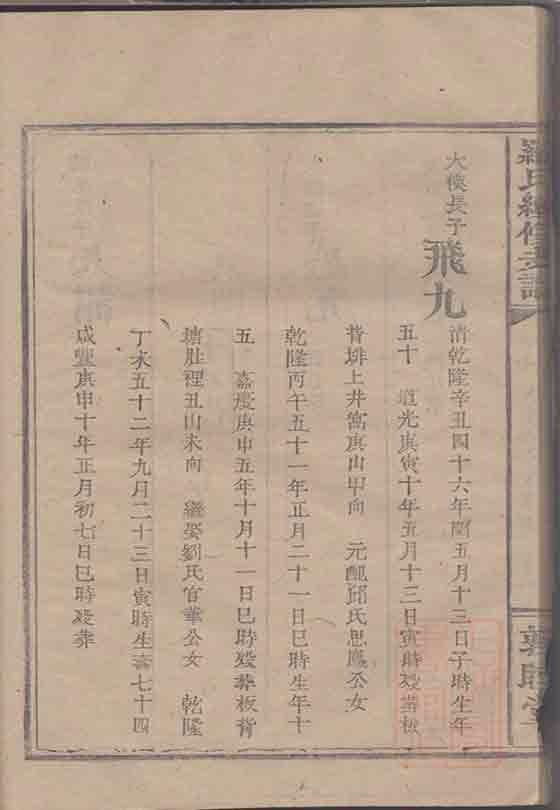 羅氏續修支譜
大模長子
飛九
清乾隆辛丑四十六年閏五月十三日子時生年
五十 道光庚寅十年五月十三日寅時歿葬板
背排上井窩庚山甲向 元配邱氏思鳳公女
乾隆丙午五十一年正月二十一日巳時生年十
五 嘉慶庚申五年十月十一日巳時歿葬板背
塘肚裡丑山未向 繼娶劉氏官華公女 乾隆
丁未五十二年九月二十三日寅時生壽七十四
咸豐庚申十年正月初七日巳時歿葬